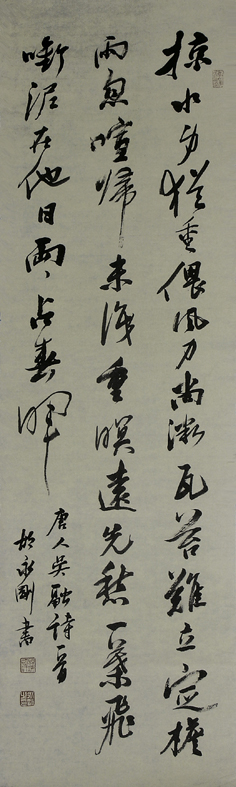 掠水身犹重偎风力尚微瓦苔难立定檐
雨忽喧归未得重暝远先愁一叶飞
衔泥在他日两两占春晖
唐人吴融诗一首
於永刚书